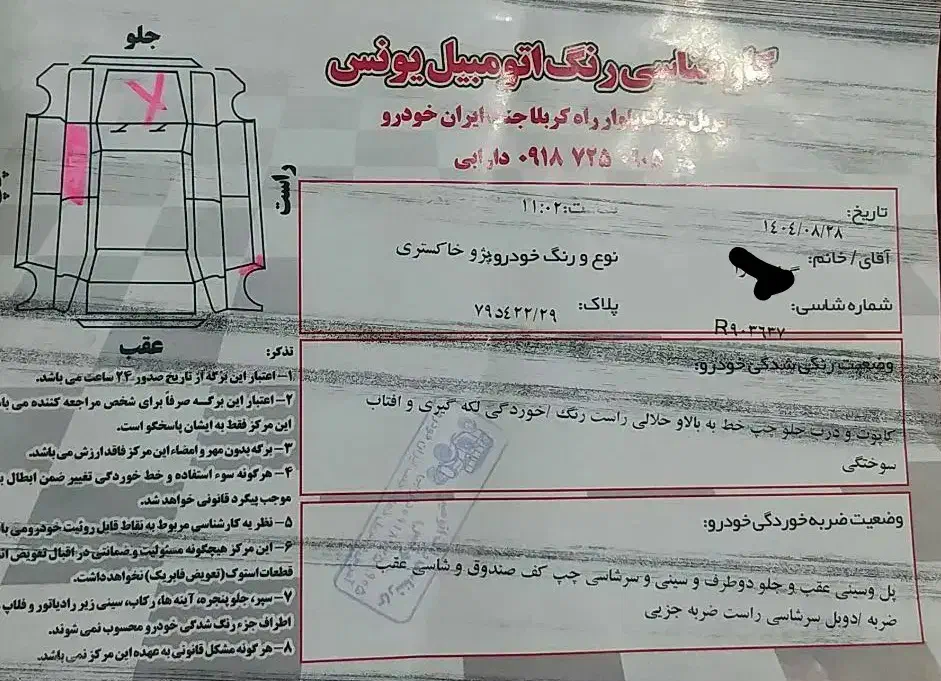 جلو
راست
عقب
کارشناسی رنگ اتومبیل یونس
بلوار راه کربلا جنب ایران خودرو
۰۹۱۸ ۷۲۵ ۰۹۰۵ دارابی
تاریخ: ۱۴۰۴/۰۸/۲۸
ساعت: ۱۱:۰۲
آقای / خانم:
نوع و رنگ خودرو پژو خاکستری
شماره شاسی: R۹۰۳۶۳۷
پلاک: ۷۹د۴۲۲/۲۹
وضعیت رنگ شدگی خودرو:
کاپوت و درب جلو چپ خط به بالاو حلالی راست رنگ /خوردگی لکه گیری و افتاب
سوختگی
وضعیت ضربه خوردگی خودرو:
پل وسینی عقب و جلو دوطرف و سینی و سرشاسی چپ کف صندوق و شاسی عقب
ضربه /دوبل سرشاسی راست ضربه جزیی
تذکر:
۱- اعتبار این برگه از تاریخ صدور ۲۴ ساعت می باشد.
۲- اعتبار این برگه صرفاً برای شخص مراجعه کننده می
این مرکز فقط به ایشان پاسخگو است.
۳- برگه بدون مهر و امضاء این مرکز فاقد ارزش می باشد.
۴- هرگونه سوء استفاده و خط خوردگی تغییر ضمن ابطال
موجب پیگرد قانونی خواهد شد.
۵- نظریه کارشناسی مربوط به نقاط قابل روئیت خودرو می
۶- این مرکز هیچگونه مسئولیت و ضمانتی در اقبال تعویض
قطعات استوک (تعویض فابریک) نخواهد داشت.
۷- سپر، جلو پنجره، آینه ها، رکاب، سینی زیر رادیاتور و فلاپ
اطراف جزء رنگ شدگی خودرو محسوب نمی شوند.
۸- هرگونه مشکل قانونی به عهده این مرکز نمی باشد.